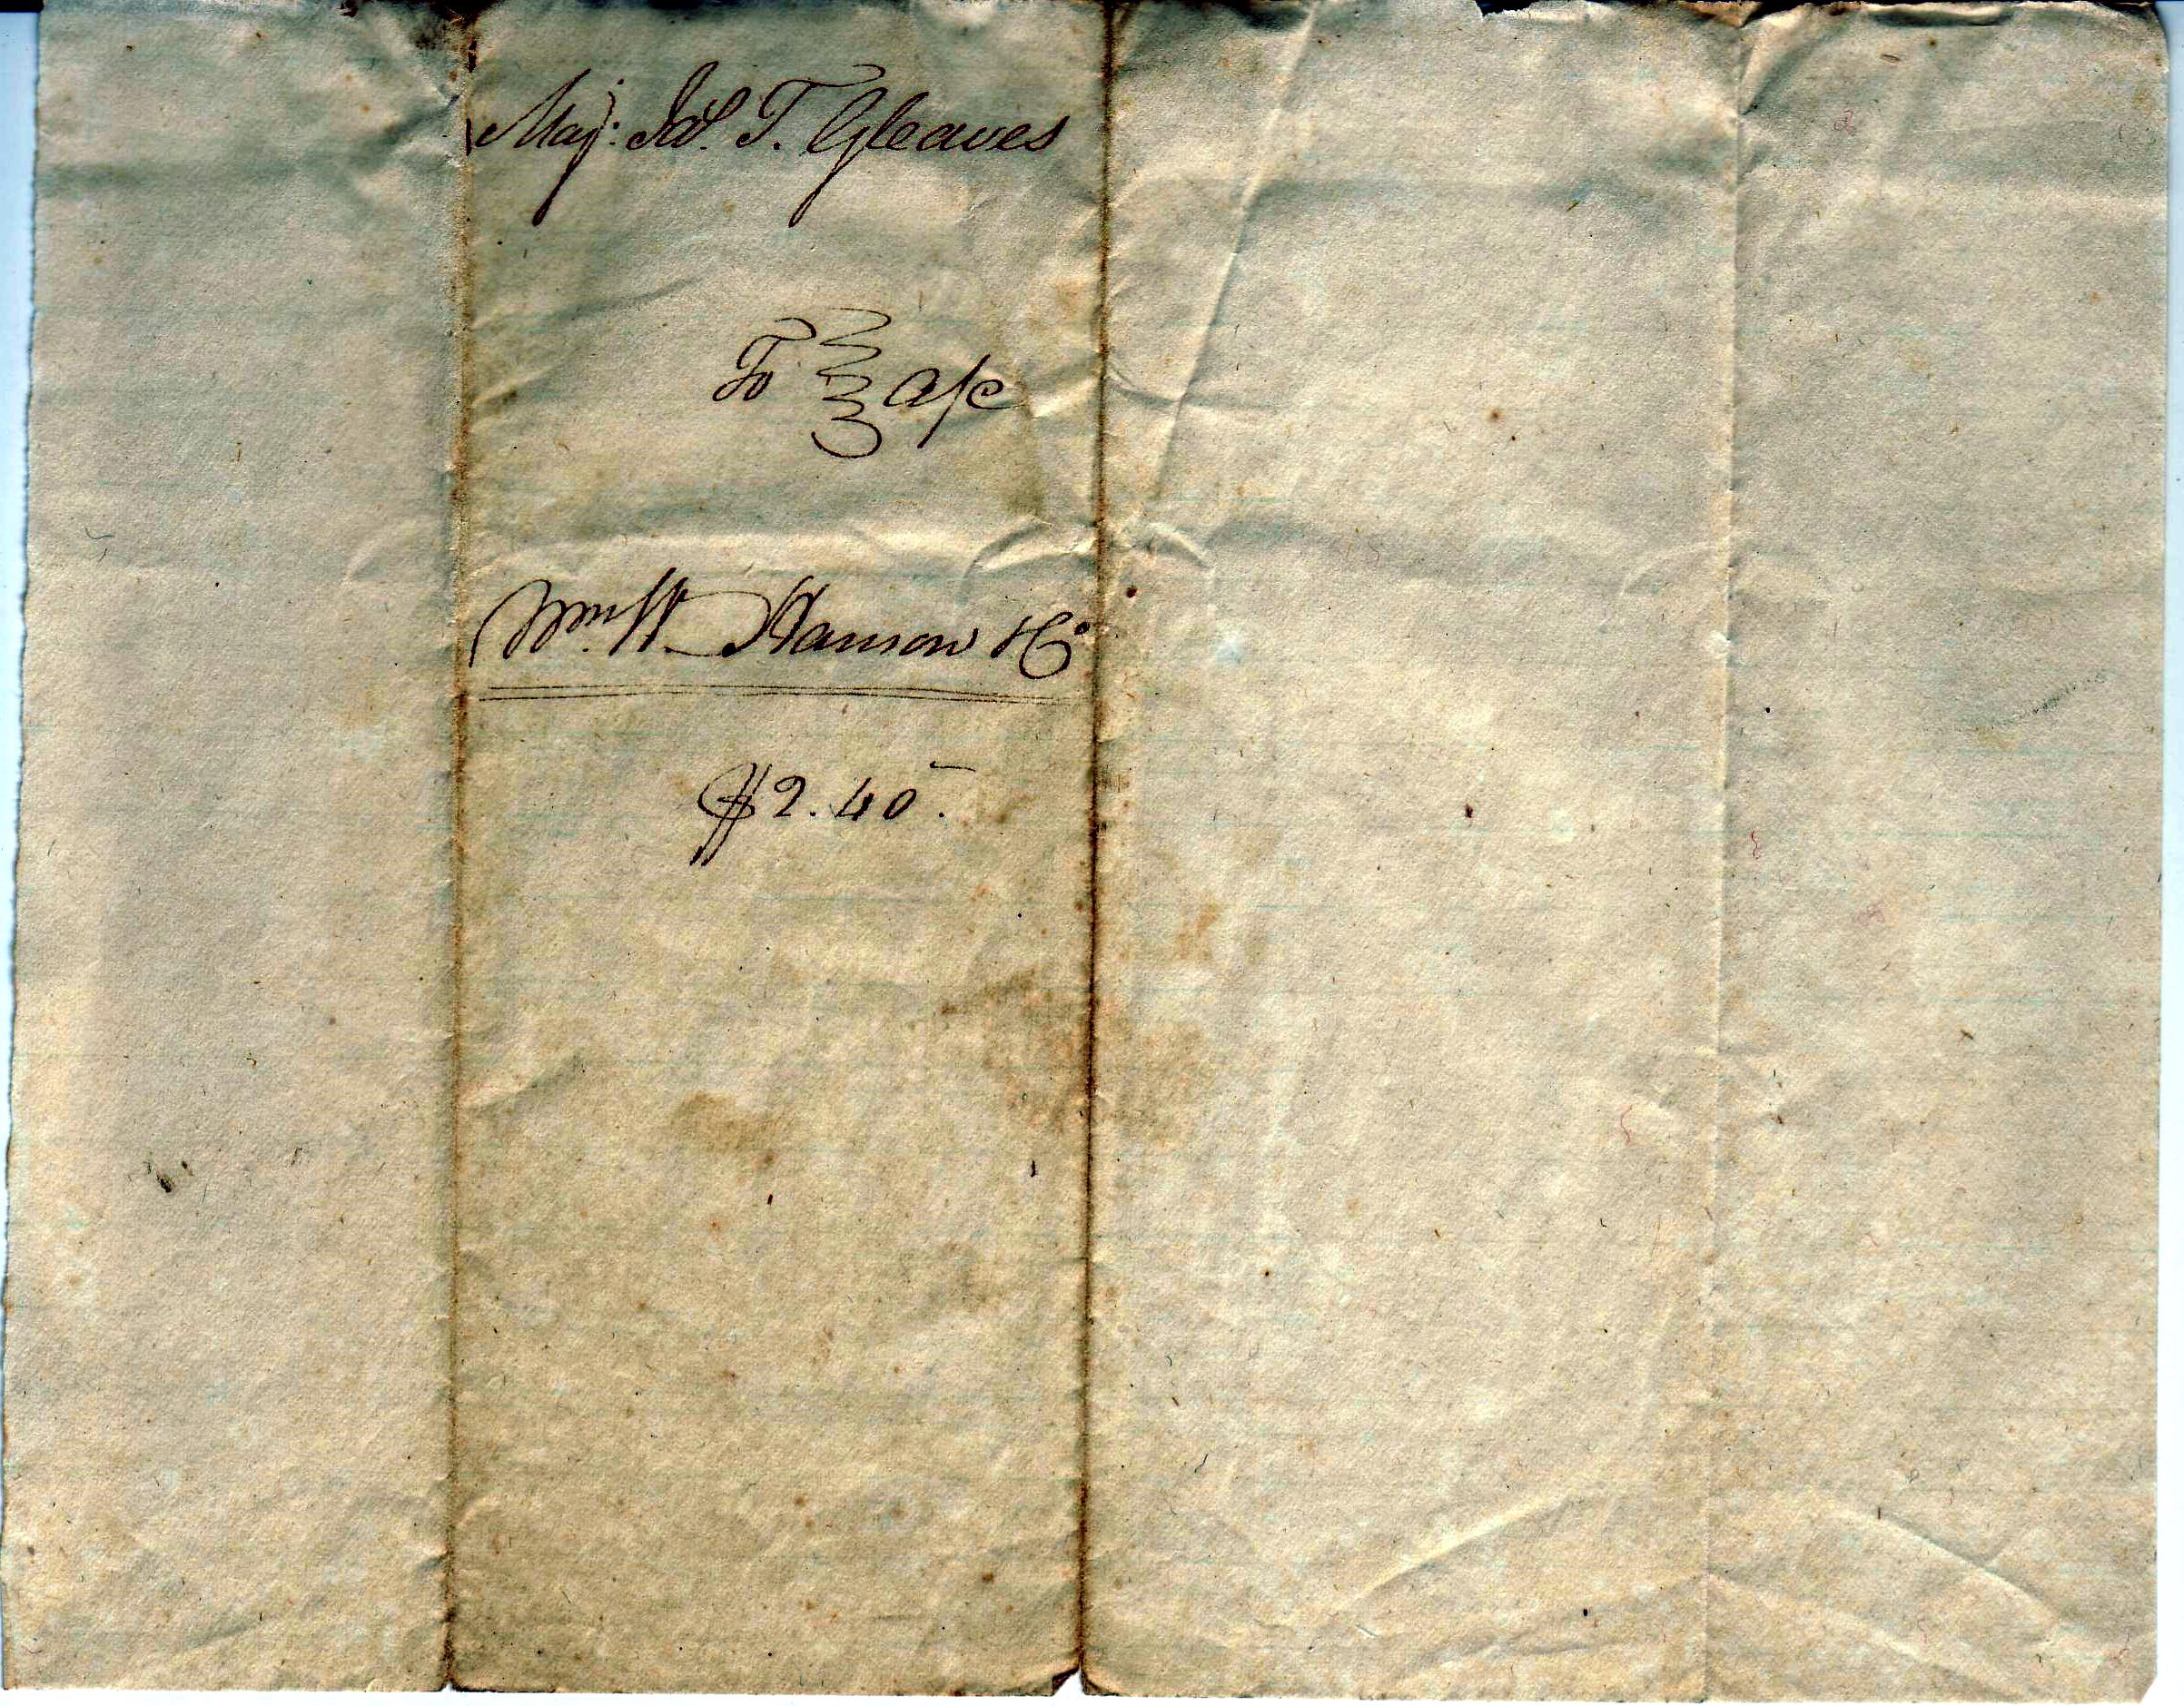 Maj: Jas. T. Gleaves
To a/c
Wm. H. Hanson & Co
$2.40